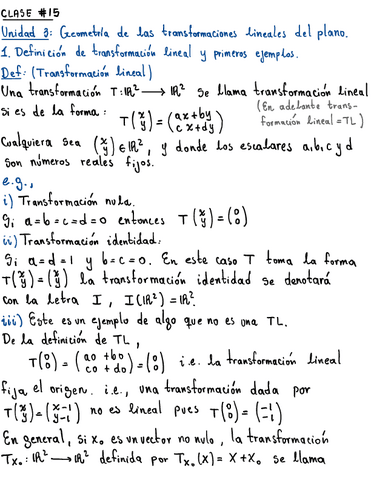 CLASE #15
Unidad 3: Geometría de las transformaciones lineales del plano.
1. Definición de transformación lineal y primeros ejemplos.
Def: (Transformación lineal)
Una transformación T: ℝ² ⟶ ℝ² se llama transformación lineal
si es de la forma: T(x y) = (ax+by cx+dy) (En adelante trans-
formación lineal = TL)
Cualquiera sea (x y) ∈ ℝ², y donde los escalares a, b, c y d
son números reales fijos.
e.g.,
i) Transformación nula.
Si a=b=c=d=0 entonces T(x y) = (0 0)
ii) Transformación identidad:
Si a=d=1 y b=c=0. En este caso T toma la forma
T(x y) = (x y) la transformación identidad se denotará
con la letra I, I(ℝ²) = ℝ².
iii) Este es un ejemplo de algo que no es una TL.
De la definición de TL,
T(0 0) = (a0 + b0 c0 + d0) = (0 0) i.e. la transformación lineal
fija el origen. i.e., una transformación dada por
T(x y) = (x-1 y-1) no es lineal pues T(0 0) = (-1 -1)
En general, si x₀ es un vector no nulo, la transformación
Tx₀: ℝ² ⟶ ℝ² definida por Tx₀(X) = X + X₀ se llama